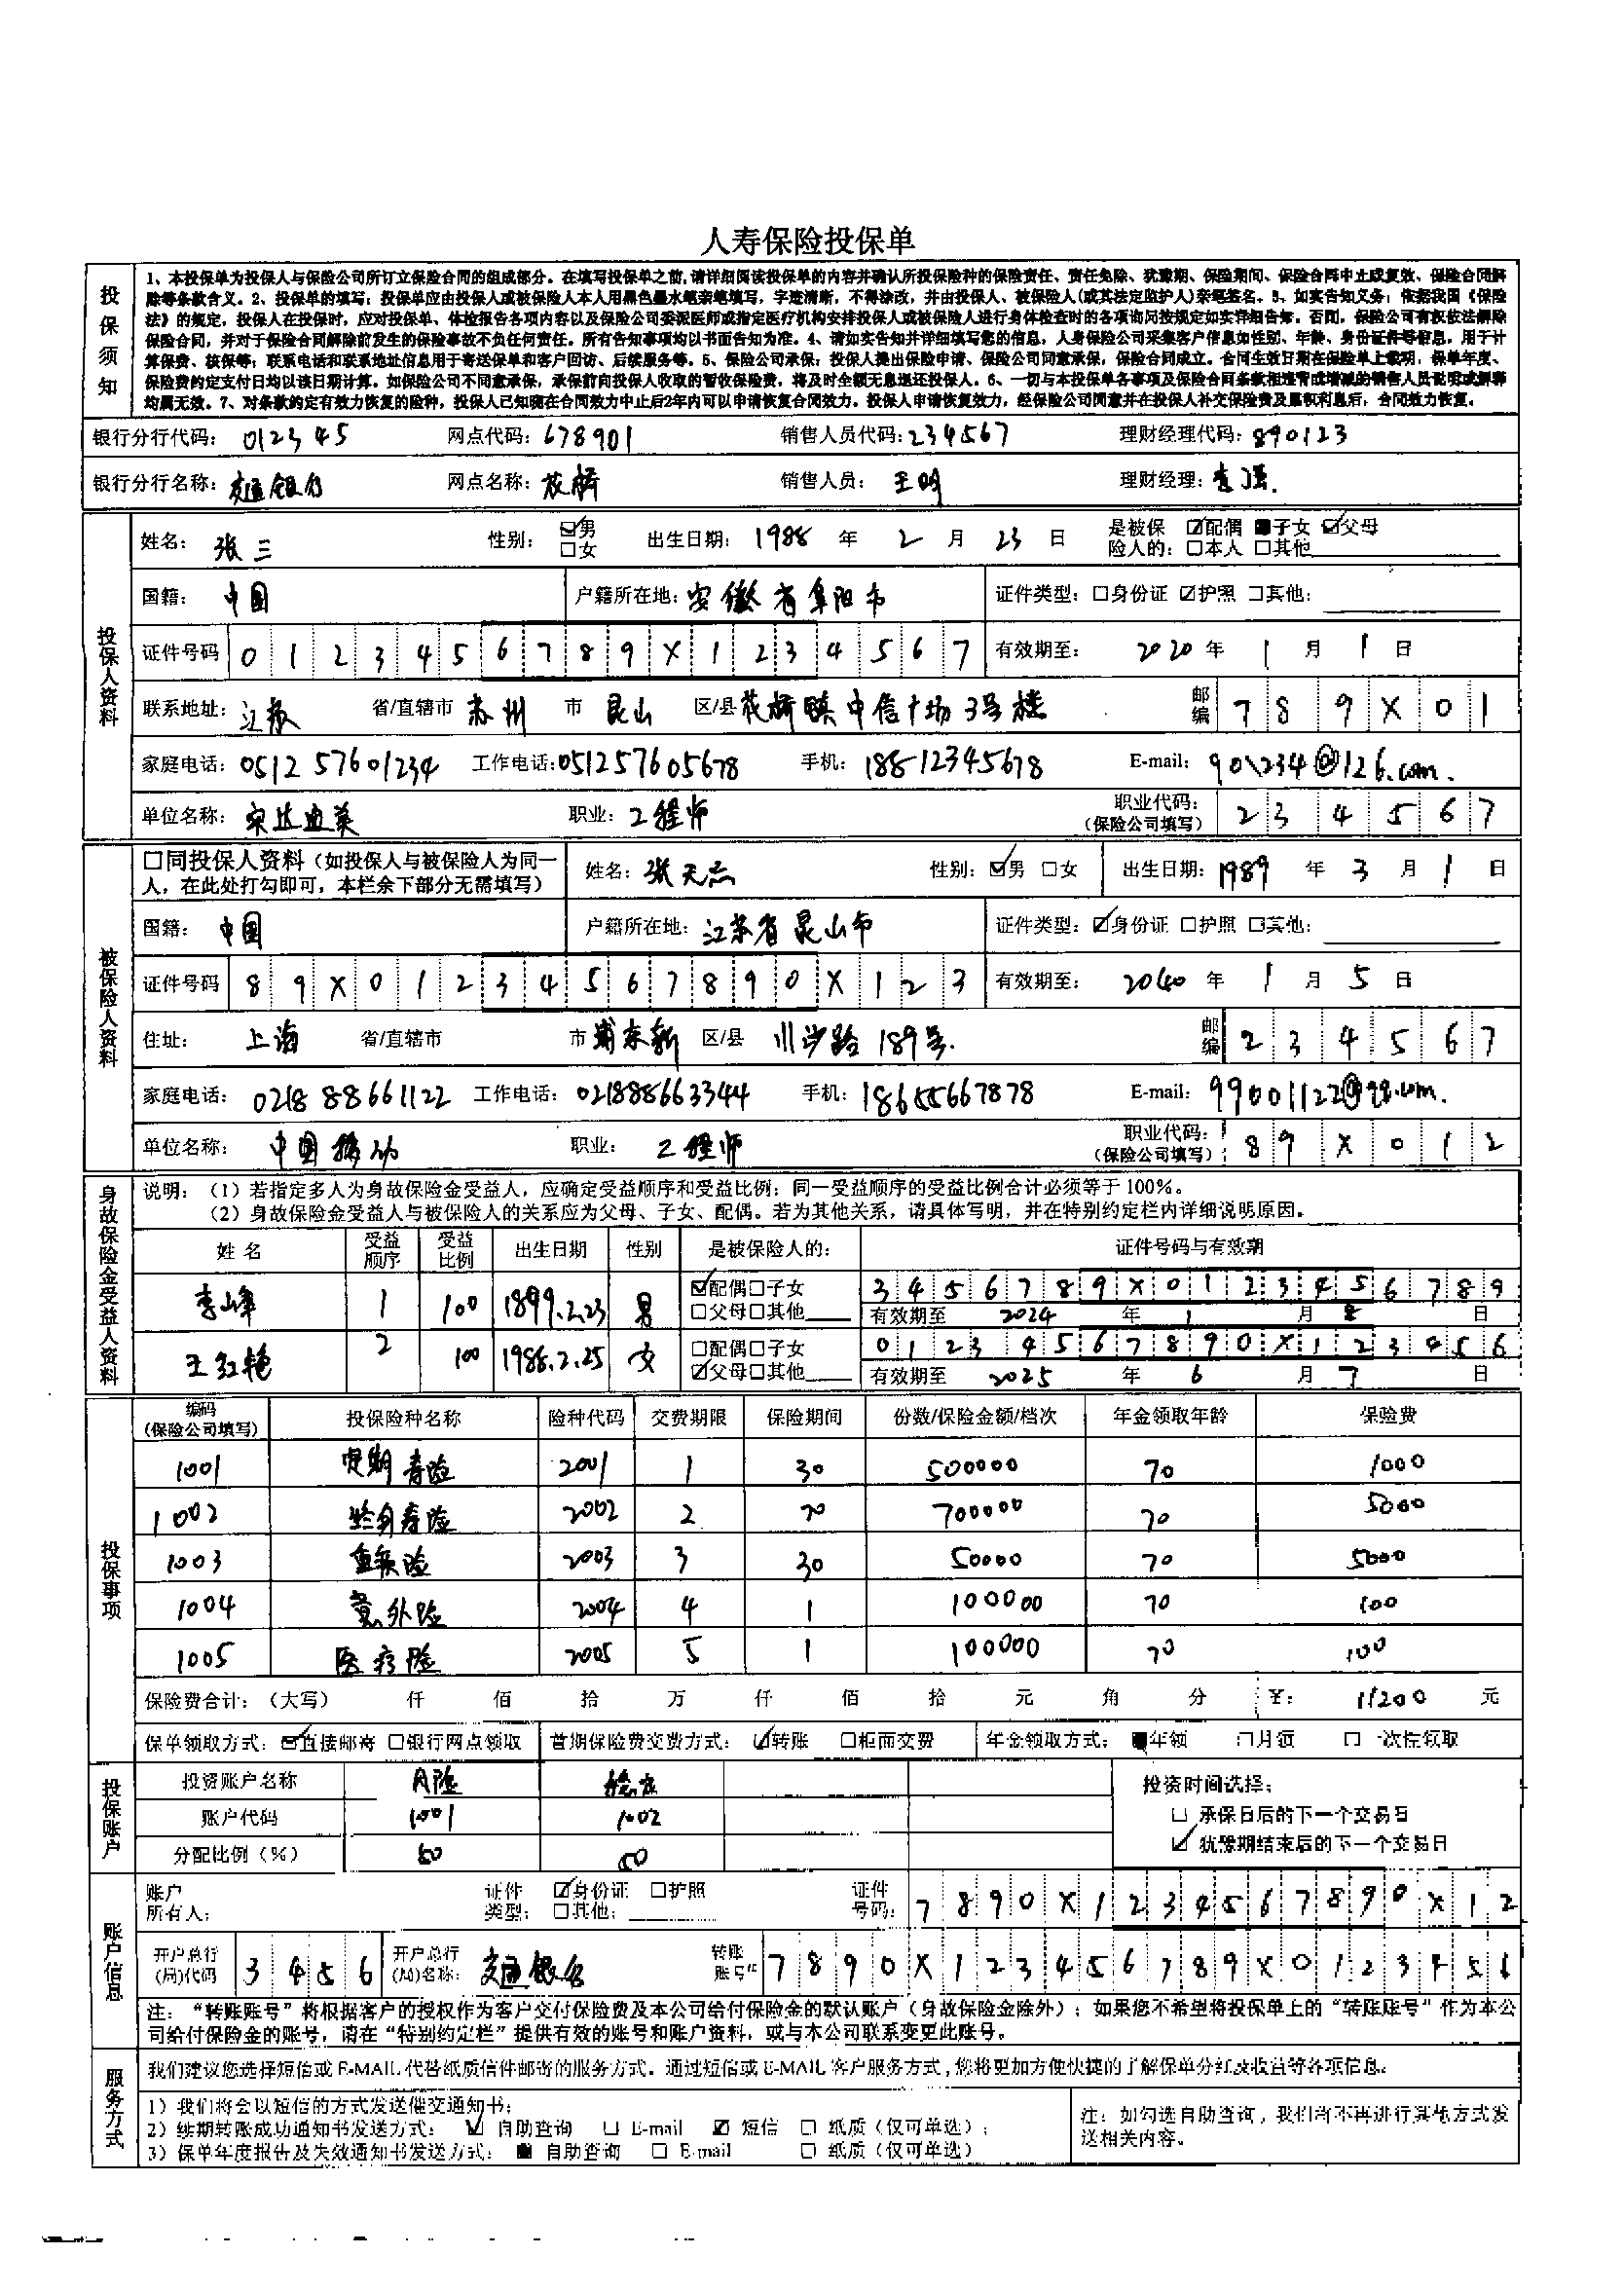 人寿保险投保单
投保须知
1、本投保单为投保人与保险公司所订立保险合同的组成部分。在填写投保单之前,请详细阅读投保单的内容并确认所投保险种的保险责任、责任免除、犹豫期、保险期间、保险合同中止或复效、保险合同解
除等条款含义。2、投保单的填写:投保单应由投保人或被保险人本人用黑色墨水笔亲笔填写,字迹清晰,不得涂改,并由投保人、被保险人(或其法定监护人)亲笔签名。3、如实告知义务:依据我国《保险
法》的规定,投保人在投保时,应对投保单、体检报告各项内容以及保险公司委派医师或指定医疗机构安排投保人或被保险人进行身体检查时的各项询问按规定如实详细告知。否则,保险公司有权依法解除
保险合同,并对于保险合同解除前发生的保险事故不负任何责任。所有告知事项均以书面告知为准。4、请如实告知并详细填写您的信息,人身保险公司采集客户信息如性别、年龄、身份证件等信息,用于计
算保费、核保等;联系电话和联系地址信息用于寄送保单和客户回访、后续服务等。5、保险公司承保:投保人提出保险申请、保险公司同意承保,保险合同成立。合同生效日期在保险单上载明,保单年度、
保险费约定支付日均以该日期计算。如保险公司不同意承保,承保前向投保人收取的暂收保险费,将及时全额无息退还投保人。6、一切与本投保单各事项及保险合同条款相违背或增减的销售人员说明或解释
均属无效。7、对条款约定有效力恢复的险种,投保人已知晓在合同效力中止后2年内可以申请恢复合同效力。投保人申请恢复效力,经保险公司同意并在投保人补交保险费及累积利息后,合同效力恢复。
银行分行代码: 012345 网点代码: 678901 销售人员代码: 234567 理财经理代码: 890123
银行分行名称: 交通银行 网点名称: 花桥 销售人员: 王明 理财经理: 李强.
投保人资料
姓名: 张三 性别: ☑男 □女 出生日期: 1988 年 2 月 23 日 是被保险人的: ☑配偶 ■子女 ☑父母 □本人 □其他
国籍: 中国 户籍所在地: 安徽省阜阳市 证件类型: □身份证 ☑护照 □其他:
证件号码 0 1 2 3 4 5 6 7 8 9 X 1 2 3 4 5 6 7 有效期至: 2020 年 1 月 1 日
联系地址: 江苏 省/直辖市 苏州 市 昆山 区/县 花桥镇中信广场3号楼 邮编 7 8 9 X 0 1
家庭电话: 0512 57601234 工作电话: 051257605678 手机: 18812345678 E-mail: 901234@126.com.
单位名称: 职业: 工程师 职业代码:(保险公司填写) 2 3 4 5 6 7
被保险人资料
□同投保人资料(如投保人与被保险人为同一人,在此处打勾即可,本栏余下部分无需填写) 姓名: 张天志 性别: ☑男 □女 出生日期: 1989 年 3 月 1 日
国籍: 中国 户籍所在地: 江苏省昆山市 证件类型: ☑身份证 □护照 □其他:
证件号码 8 9 X 0 1 2 3 4 5 6 7 8 9 0 X 1 2 3 有效期至: 2040 年 1 月 5 日
住址: 上海 省/直辖市 市 浦东新 区/县 川沙路 189号. 邮编 2 3 4 5 6 7
家庭电话: 0218 88661122 工作电话: 021888663344 手机: 18655667878 E-mail: 99001122@qq.com.
单位名称: 中国移动 职业: 工程师 职业代码:(保险公司填写) 8 9 X 0 1 2
身故保险金受益人资料
说明:(1)若指定多人为身故保险金受益人,应确定受益顺序和受益比例;同一受益顺序的受益比例合计必须等于100%。
(2)身故保险金受益人与被保险人的关系应为父母、子女、配偶。若为其他关系,请具体写明,并在特别约定栏内详细说明原因。
姓名 受益顺序 受益比例 出生日期 性别 是被保险人的: 证件号码与有效期
李峰 1 100 1899.2.23 男 ☑配偶□子女 □父母□其他 3 4 5 6 7 8 9 X 0 1 2 3 4 5 6 7 8 9
有效期至 2024 年 1 月 8 日
王红艳 2 100 1988.2.25 女 □配偶□子女 ☑父母□其他 0 1 2 3 4 5 6 7 8 9 0 X 1 2 3 4 5 6
有效期至 2025 年 6 月 7 日
投保事项
编码(保险公司填写) 投保险种名称 险种代码 交费期限 保险期间 份数/保险金额/档次 年金领取年龄 保险费
1001 定期寿险 2001 1 30 500000 70 1000
1002 终身寿险 2002 2 70 700000 70 5000
1003 重疾险 2003 3 30 50000 70 5000
1004 意外险 2004 4 1 100000 70 100
1005 医疗险 2005 5 1 100000 70 100
保险费合计:(大写) 仟 佰 拾 万 仟 佰 拾 元 角 分 ¥: 11200 元
保单领取方式: ☑直接邮寄 □银行网点领取 首期保险费交费方式: ☑转账 □柜面交费 年金领取方式: ■年领 □月领 □一次性领取
投保账户
投资账户名称 A险 投资时间选择:
账户代码 1001 1002 □ 承保日后的下一个交易日
分配比例(%) 60 50 ☑ 犹豫期结束后的下一个交易日
账户信息
账户所有人: 证件类型: ☑身份证 □护照 □其他: 证件号码: 7 8 9 0 X 1 2 3 4 5 6 7 8 9 0 X 1 2
开户总行(局)代码 3 4 5 6 开户总行(局)名称: 交通银行 转账账号 7 8 9 0 X 1 2 3 4 5 6 7 8 9 X 0 1 2 3 4 5 6
注:“转账账号”将根据客户的授权作为客户交付保险费及本公司给付保险金的默认账户(身故保险金除外);如果您不希望将投保单上的“转账账号”作为本公
司给付保险金的账号,请在“特别约定栏”提供有效的账号和账户资料,或与本公司联系变更此账号。
服务方式
我们建议您选择短信或E-MAIL代替纸质信件邮寄的服务方式。通过短信或E-MAIL客户服务方式,您将更加方便快捷的了解保单分红及收益等各项信息。
1)我们将会以短信的方式发送催交通知书;
2)续期转账成功通知书发送方式: ☑ 自助查询 □ E-mail ☑ 短信 □ 纸质(仅可单选);
3)保单年度报告及失效通知书发送方式: ■ 自助查询 □ E-mail □ 纸质(仅可单选)
注:如勾选自助查询,我们将不再进行其他方式发
送相关内容。